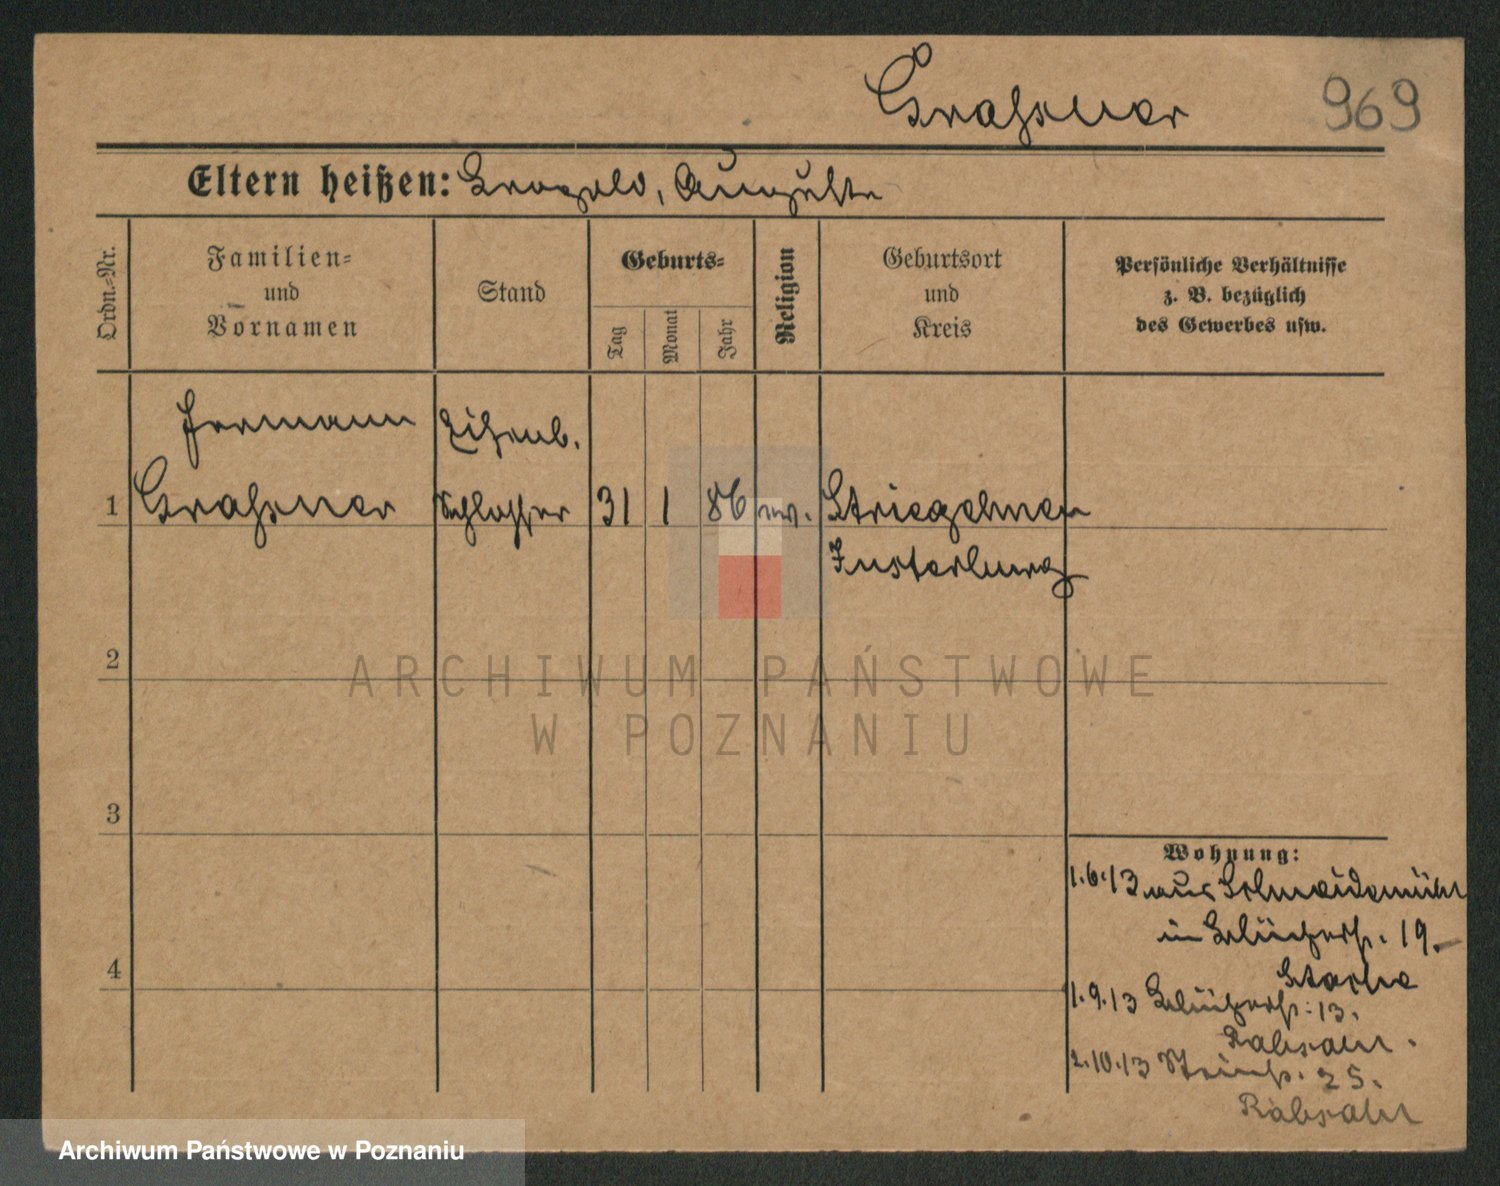 Graßmer
969
Eltern heißen: Leopold, Auguste
Ordn.-Nr.
Familien-
und
Vornamen
Stand
Geburts-
Tag
Monat
Jahr
Religion
Geburtsort
und
Kreis
Persönliche Verhältnisse
z. B. bezüglich
des Gewerbes usw.
Hermann
Eisenb.
1
Schlosser
31
1
86
ev.
Striegehnen
Insterburg
2
3
4
Wohnung:
1.6.13 aus Schneidemühl
in Blücherstr. 19.
1.9.13 Blücherstr. 13.
Rabsahl.
2.10.13 Steinstr. 25.
Rabsahl
ARCHIWUM PAŃSTWOWE
W POZNANIU
Archiwum Państwowe w Poznaniu